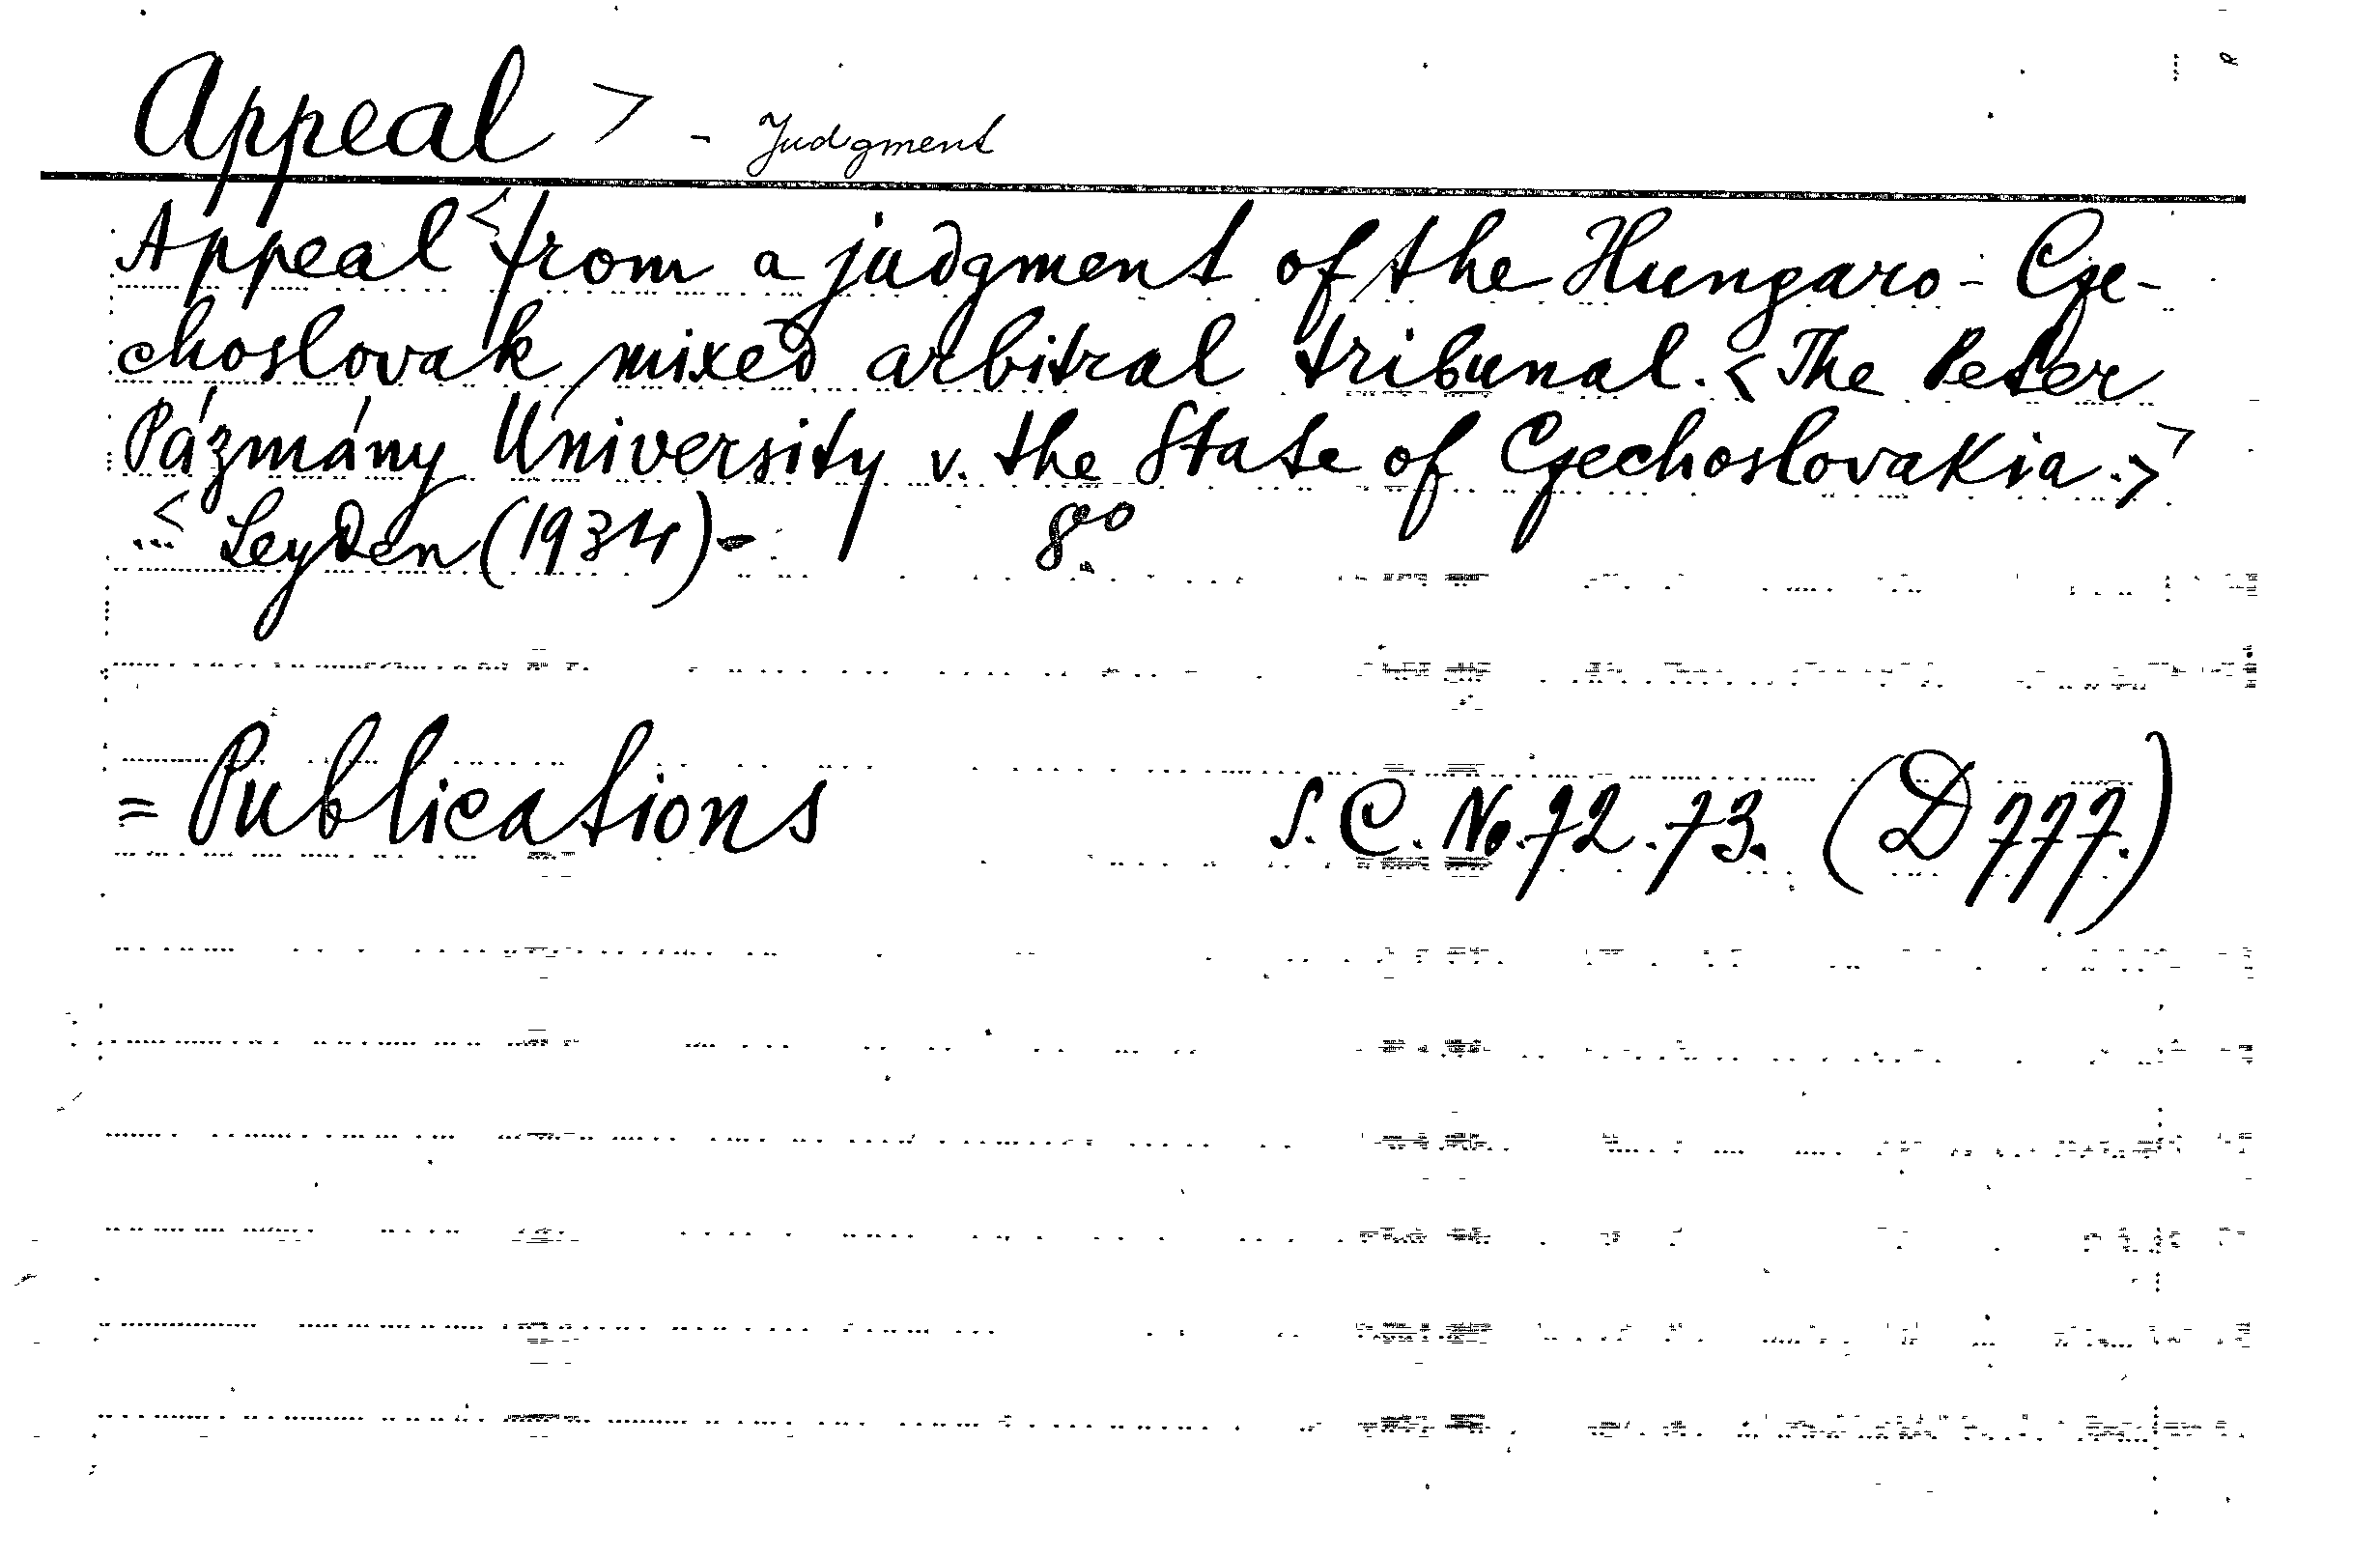 Appeal > - Judgment
Appeal < from a judgment of the Hungaro-Cze-
choslovak mixed arbitral tribunal. < The Peter
Pázmány University v. the State of Czechoslovakia. > >
< ... Leyden (1934)- 8°°.
= Publications S. C. No. 72. 73. (D 777.)